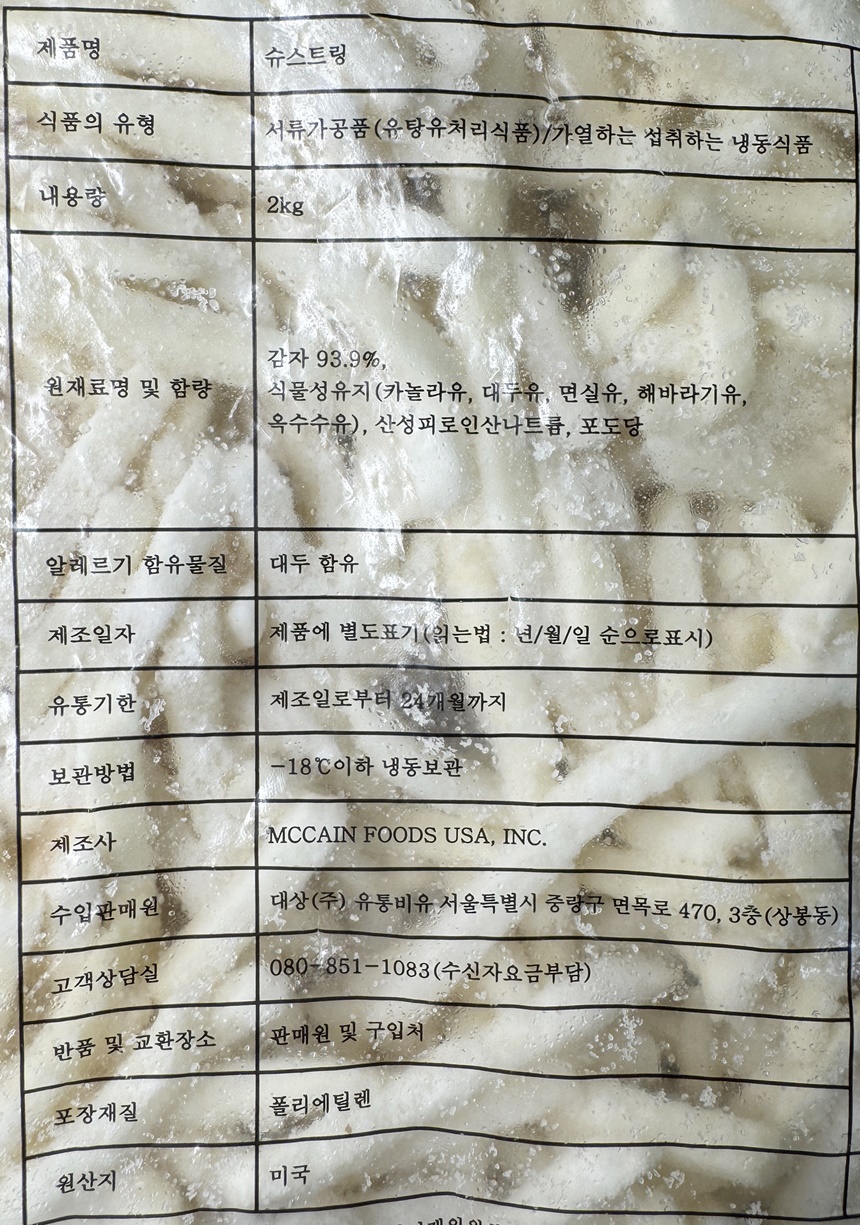 제품명 슈스트링
식품의 유형 서류가공품(유탕유처리식품)/가열하는 섭취하는 냉동식품
내용량 2kg
원재료명 및 함량 감자 93.9%,
식물성유지(카놀라유, 대두유, 면실유, 해바라기유,
옥수수유), 산성피로인산나트륨, 포도당
알레르기 함유물질 대두 함유
제조일자 제품에 별도표기(읽는법 : 년/월/일 순으로표시)
유통기한 제조일로부터 24개월까지
보관방법 -18℃이하 냉동보관
제조사 MCCAIN FOODS USA, INC.
수입판매원 대상(주) 유통비유 서울특별시 중랑구 면목로 470, 3층(상봉동)
고객상담실 080-851-1083(수신자요금부담)
반품 및 교환장소 판매원 및 구입처
포장재질 폴리에틸렌
원산지 미국